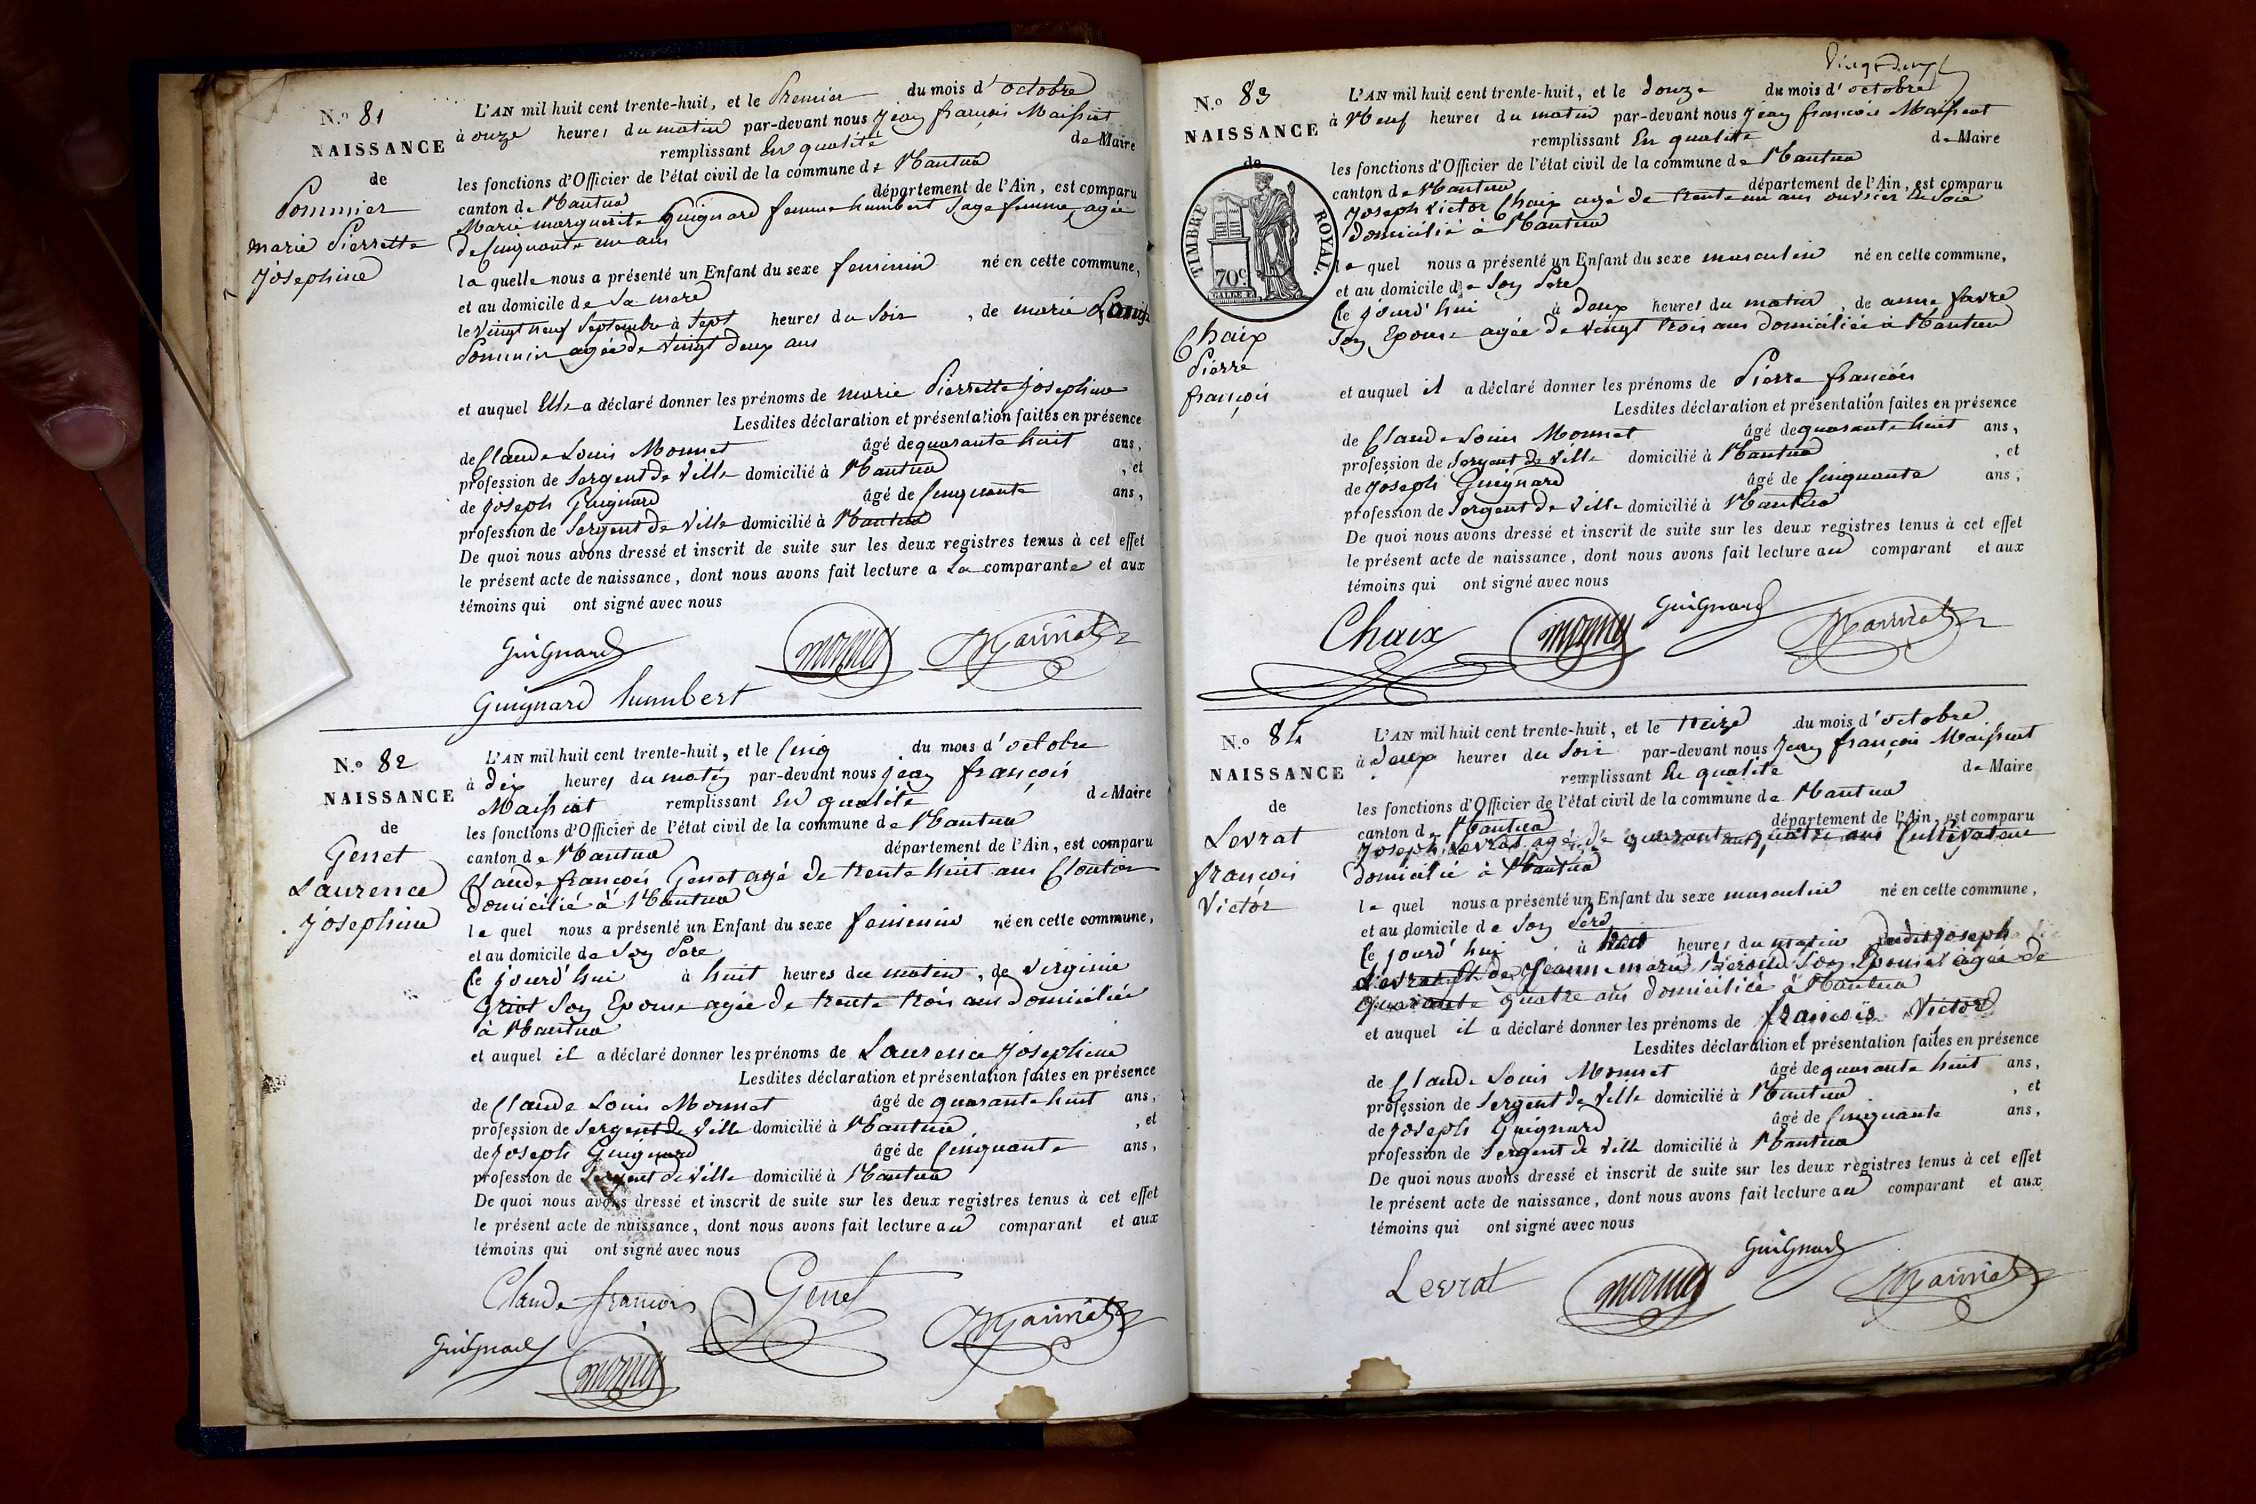 N.º 81
NAISSANCE
de
Pommier
marie Pierrette
Joséphine
L'AN mil huit cent trente-huit, et le Premier du mois d'octobre
à onze heures du matin par-devant nous Jean françois Maissiat
remplissant En qualité de Maire
les fonctions d'Officier de l'état civil de la commune de Nantua
canton de Nantua département de l'Ain, est comparu
Marie marguerite Guignard femme humbert Sage femme, agée
de Cinquante un ans
la quelle nous a présenté un Enfant du sexe feminin né en cette commune,
et au domicile de Sa mere
le vingt neuf Septembre à Sept heures du Soir, de marie
Pommier agée de vingt deux ans
et auquel Elle a déclaré donner les prénoms de marie Pierrette Josephine
Lesdites déclaration et présentation faites en présence
de Claude Louis Monnet âgé de quarante huit ans,
profession de Sergent de Ville domicilié à Nantua, et
de Joseph Guignard âgé de Cinquante ans,
profession de Sergent de Ville domicilié à Nantua
De quoi nous avons dressé et inscrit de suite sur les deux registres tenus à cet effet
le présent acte de naissance, dont nous avons fait lecture a La comparante et aux
témoins qui ont signé avec nous
Guignard monnet Maissiat
Guignard humbert
N.º 82
NAISSANCE
de
Genet
Laurence
Josephine
L'AN mil huit cent trente-huit, et le Cinq du mois d'octobre
à dix heures du matin par-devant nous jean françois
Maissiat remplissant En qualité de Maire
les fonctions d'Officier de l'état civil de la commune de Nantua
canton de Nantua département de l'Ain, est comparu
Claude françois Genet agé de trente huit ans Cloutier
domicilié à Nantua
le quel nous a présenté un Enfant du sexe feminin né en cette commune,
et au domicile de Son Pere
Ce jourd'hui à huit heures du matin, de virginie
Griot Son Epouse agée de trente trois ans domiciliée
à Nantua
et auquel il a déclaré donner les prénoms de Laurence Josephine
Lesdites déclaration et présentation faites en présence
de Claude Louis Monnet âgé de quarante huit ans,
profession de Sergent de Ville domicilié à Nantua, et
de Joseph Guignard âgé de Cinquante ans,
profession de Sergent de Ville domicilié à Nantua
De quoi nous avons dressé et inscrit de suite sur les deux registres tenus à cet effet
le présent acte de naissance, dont nous avons fait lecture au comparant et aux
témoins qui ont signé avec nous
Claude françois Genet Maissiat
Guignard monnet
N.º 83
NAISSANCE
de
TIMBRE ROYAL.
70 c.
Chaix
Pierre
françois
L'AN mil huit cent trente-huit, et le douze du mois d'octobre
à Neuf heures du matin par-devant nous Jean françois Maissiat
remplissant En qualité de Maire
les fonctions d'Officier de l'état civil de la commune de Nantua
canton de Nantua département de l'Ain, est comparu
Joseph Victor Chaix agé de trente un ans ouvrier En Soie
domicilié à Nantua
le quel nous a présenté un Enfant du sexe masculin né en cette commune,
et au domicile de Son Pere
Ce jourd'hui à deux heures du matin, de anne favre
Son Epouse agée de vingt trois ans domiciliée à Nantua
et auquel il a déclaré donner les prénoms de Pierre françois
Lesdites déclaration et présentation faites en présence
de Claude Louis Monnet âgé de quarante huit ans,
profession de Sergent de Ville domicilié à Nantua, et
de Joseph Guignard âgé de Cinquante ans,
profession de Sergent de Ville domicilié à Nantua
De quoi nous avons dressé et inscrit de suite sur les deux registres tenus à cet effet
le présent acte de naissance, dont nous avons fait lecture au comparant et aux
témoins qui ont signé avec nous
Chaix monnet Guignard Maissiat
N.º 84
NAISSANCE
de
Levrat
françois
Victor
L'AN mil huit cent trente-huit, et le treize du mois d'octobre
à deux heures du Soir par-devant nous Jean françois Maissiat
remplissant En qualité de Maire
les fonctions d'Officier de l'état civil de la commune de Nantua
canton de Nantua département de l'Ain, est comparu
Joseph Levrat agé de quarante quatre ans Cultivateur
domicilié à Nantua
le quel nous a présenté un Enfant du sexe masculin né en cette commune,
et au domicile de Son Pere
Ce jourd'hui à heures du matin dudit joseph
Levrat et de Jeanne marie Son Epouse agée de
quarante quatre ans domiciliée à Nantua
et auquel il a déclaré donner les prénoms de françois Victor
Lesdites déclaration et présentation faites en présence
de Claude Louis Monnet âgé de quarante huit ans,
profession de Sergent de Ville domicilié à Nantua, et
de Joseph Guignard âgé de Cinquante ans,
profession de Sergent de Ville domicilié à Nantua
De quoi nous avons dressé et inscrit de suite sur les deux registres tenus à cet effet
le présent acte de naissance, dont nous avons fait lecture au comparant et aux
témoins qui ont signé avec nous
Levrat monnet Guignard Maissiat